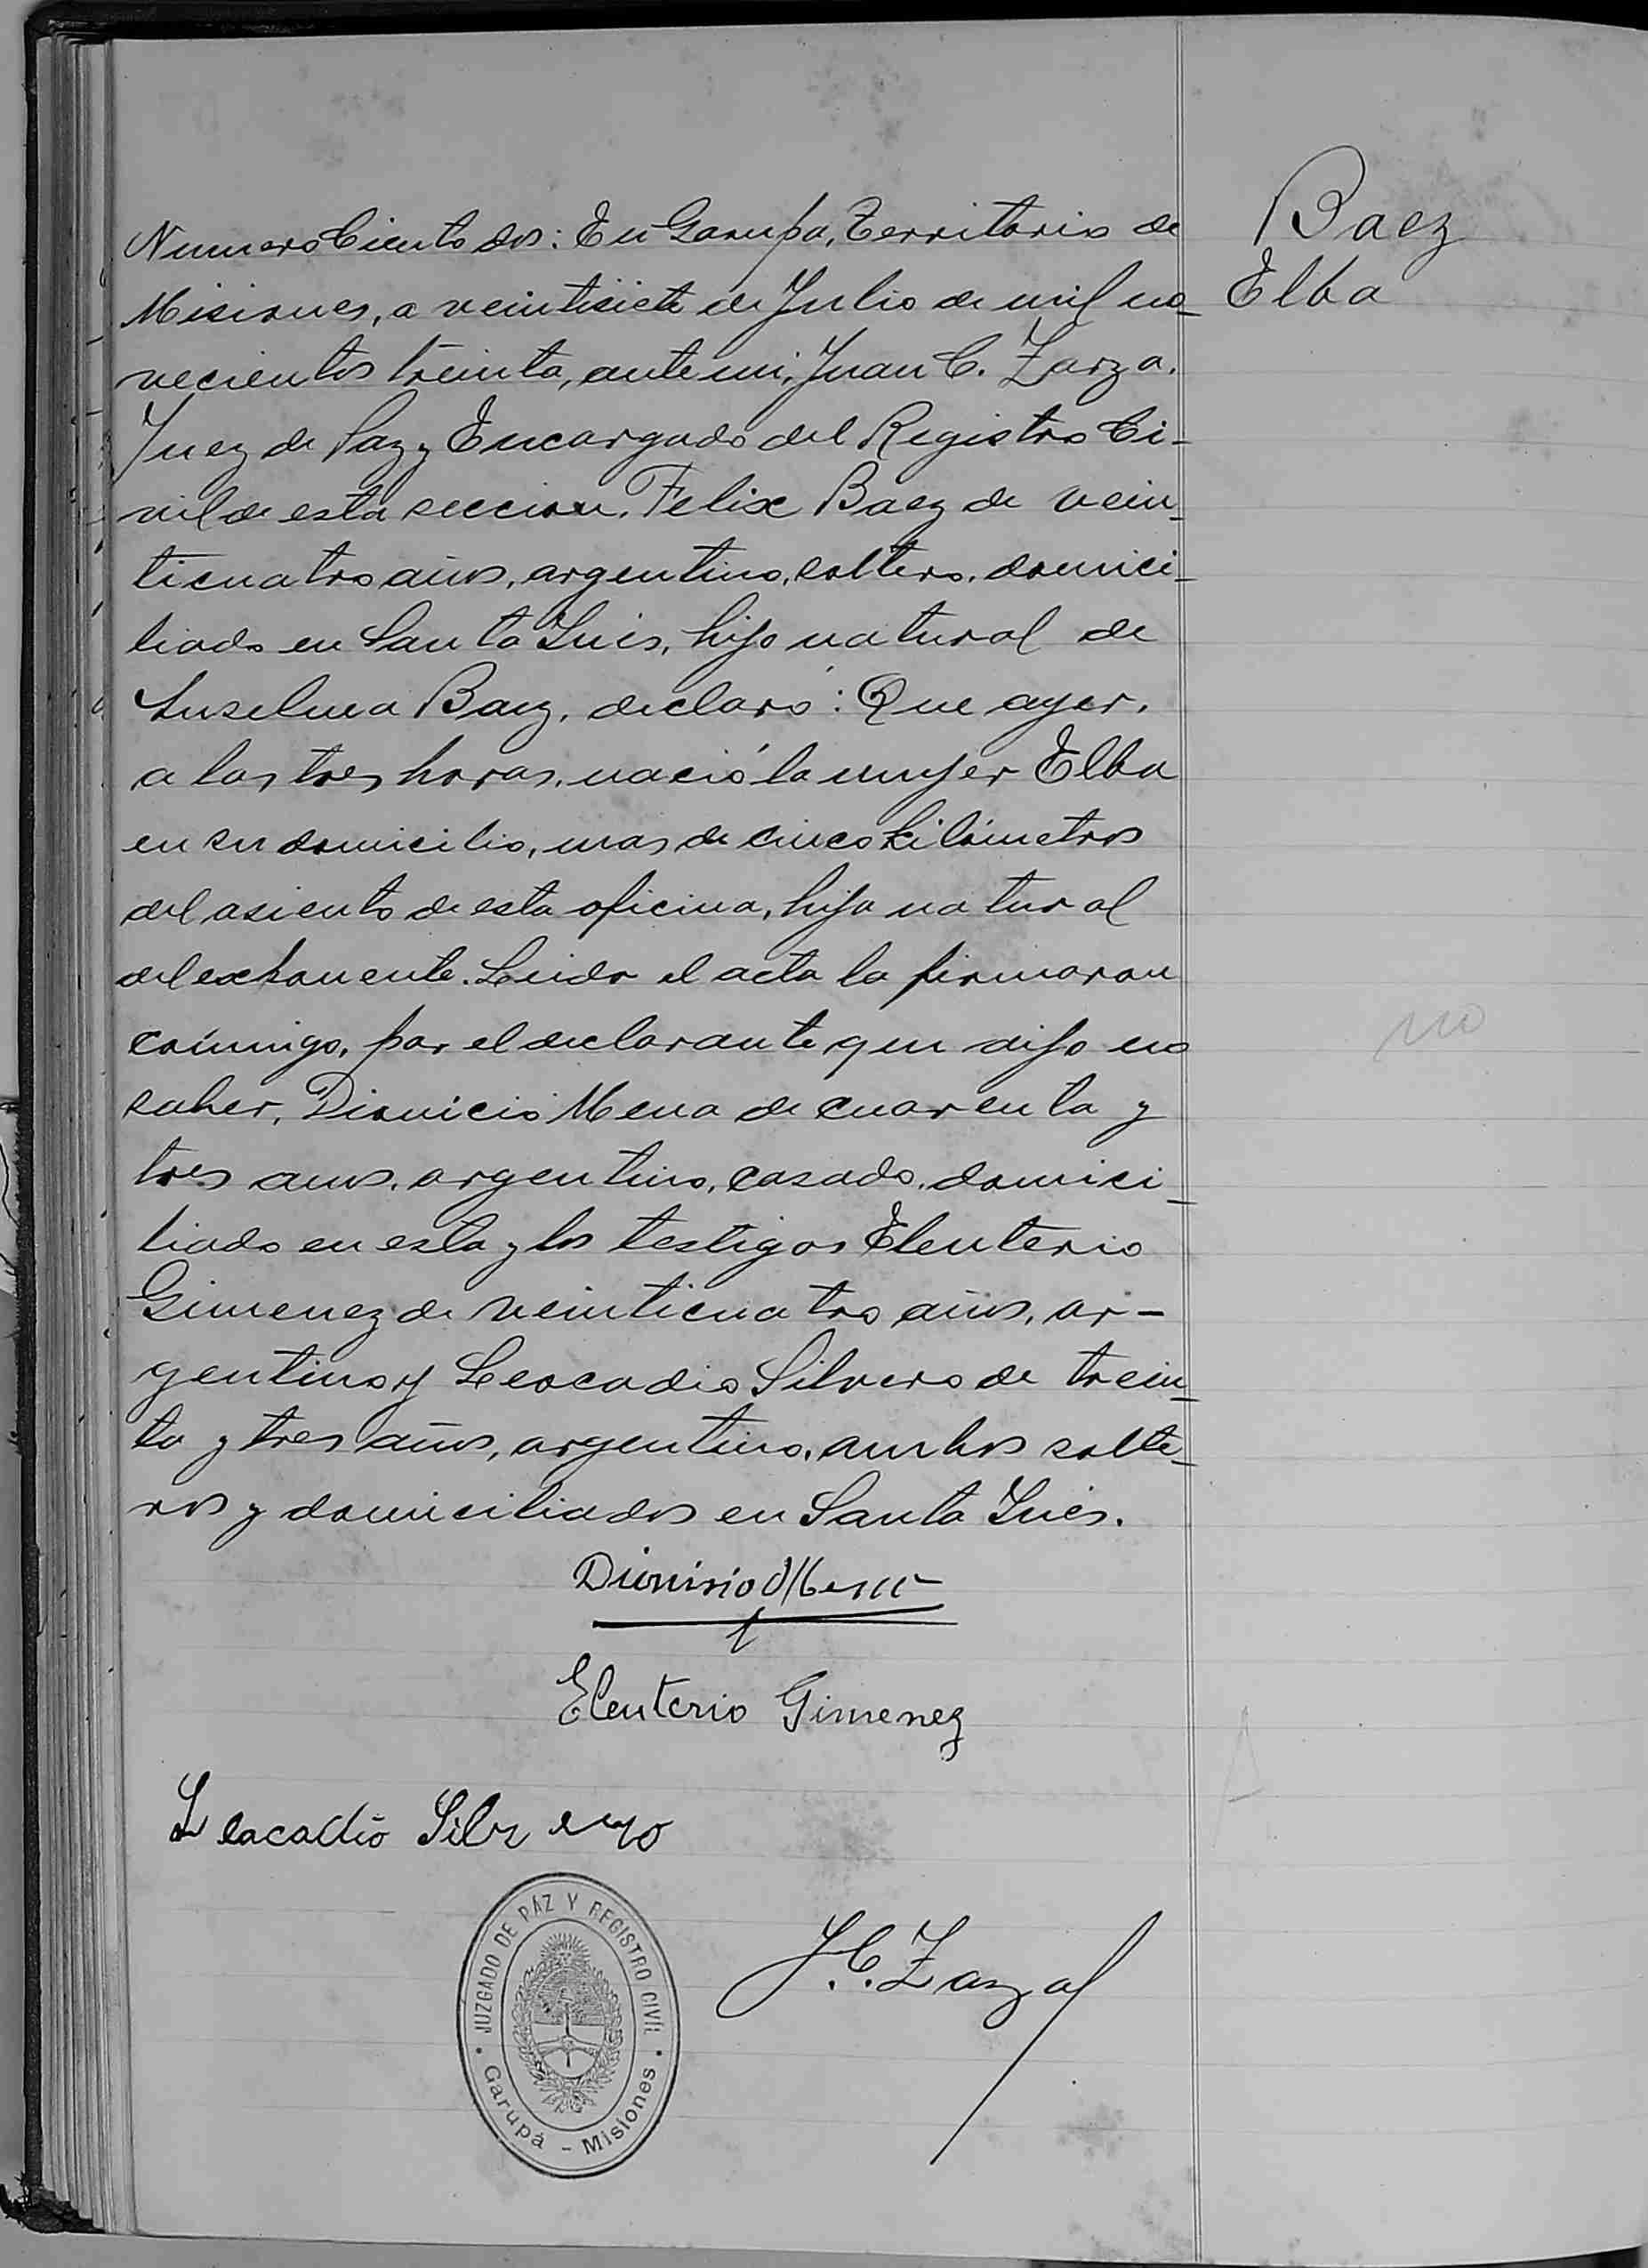 Baez
Elba
Numero Ciento dos: En Garupa, Territorio de
Misiones, a veintisiete de Julio de mil no-
vecientos treinta, ante mi, Juan C. Zarza,
Juez de Paz y Encargado del Registro Ci-
vil de esta seccion, Felix Baez de vein-
ticuatro años, argentino, soltero, domici-
liado en Santa Inés, hijo natural de
Anselma Baez, declaró: Que ayer,
a las tres horas, nació la mujer Elba
en su domicilio, mas de cinco kilómetros
del asiento de esta oficina, hija natural
del exponente. Leida el acta la firmaron
conmigo, por el declarante que dijo no
saber, Dionicio Mena de cuarenta y
tres anos, argentino, casado, domici-
liado en esta y los testigos Eleuterio
Gimenez de veinticuatro años, ar-
gentino y Leocadio Silvero de trein-
ta y tres años, argentino, ambos solte-
ros y domiciliados en Santa Inés.
Dionisio Mena
Eleuterio Gimenez
Leacadio Silvero
J. C. Zarza
JUZGADO DE PÁZ Y REGISTRO CIVÍL
Garupá - Misiones
no
A